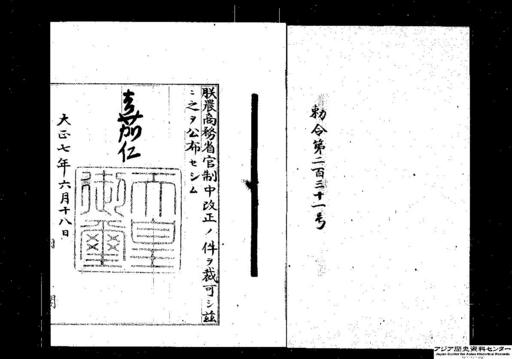 勅令第二百三十一号
朕農商務省官制中改正ノ件ヲ裁可シ茲
ニ之ヲ公布セシム
嘉仁
天皇御璽
大正七年六月十八日
内閣
アジア歴史資料センター
Japan Center for Asian Historical Records